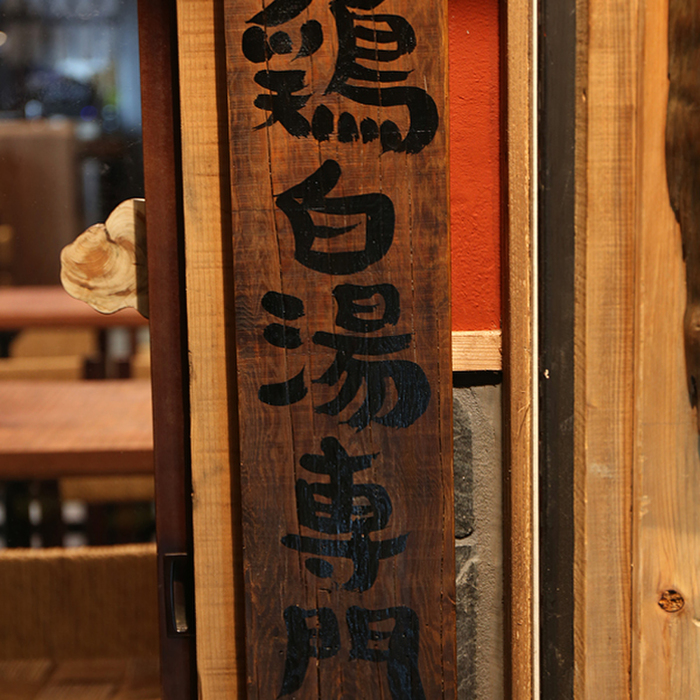 鶏白湯専門